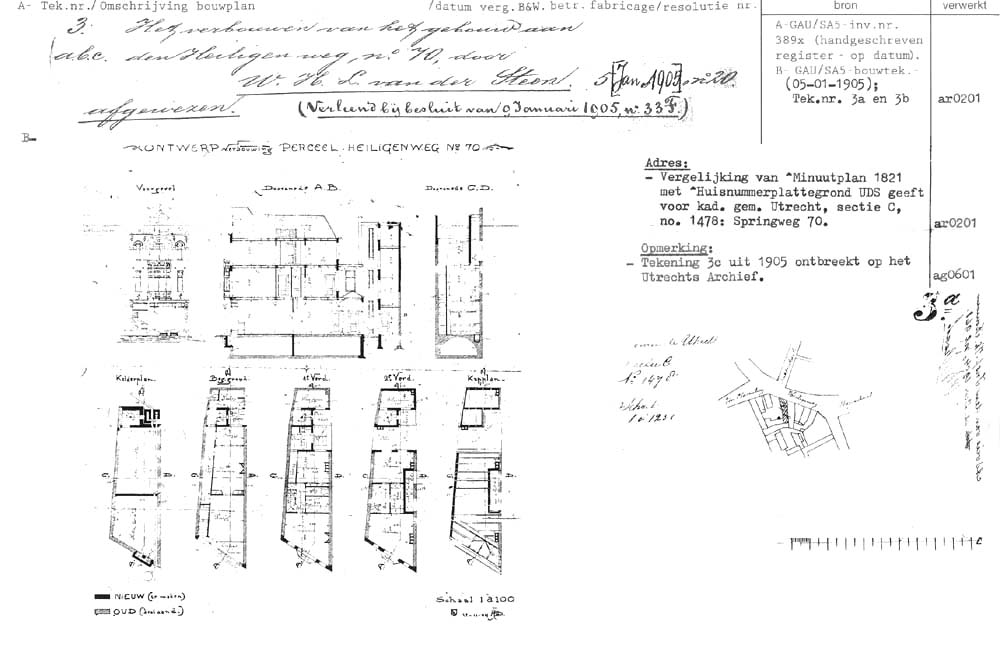 A- Tek.nr./Omschrijving bouwplan /datum verg.B&W. betr. fabricage/resolutie nr. bron verwerkt
3. Het verbouwen van het gebouw aan
a.b.c. den Heiligen weg, no. 70, door
W. H. L. van der Steen. 5 [Jan. 1905] no 20
afgewezen. (Verleend bij besluit van 9 Januari 1905, no. 33 F.)
A-GAU/SA5-inv.nr.
389x (handgeschreven
register - op datum).
B- GAU/SA5-bouwtek.-
(05-01-1905);
Tek.nr. 3a en 3b ar0201
B-
ONTWERP VERBOUWING PERCEEL HEILIGENWEG No 70
Voorgevel Doorsnede A.B. Doorsnede C.D.
Kelderplan. Beg. grond. 1e Verd. 2e Verd. Kapplan.
NIEUW (te maken)
OUD (bestaand.)
Schaal 1 à 100
Adres:
- Vergelijking van ^Minuutplan 1821
met ^Huisnummerplattegrond UDS geeft
voor kad. gem. Utrecht, sectie C,
no. 1478: Springweg 70. ar0201
Opmerking:
- Tekening 3c uit 1905 ontbreekt op het
Utrechts Archief. ag0601
3.a
No 1478